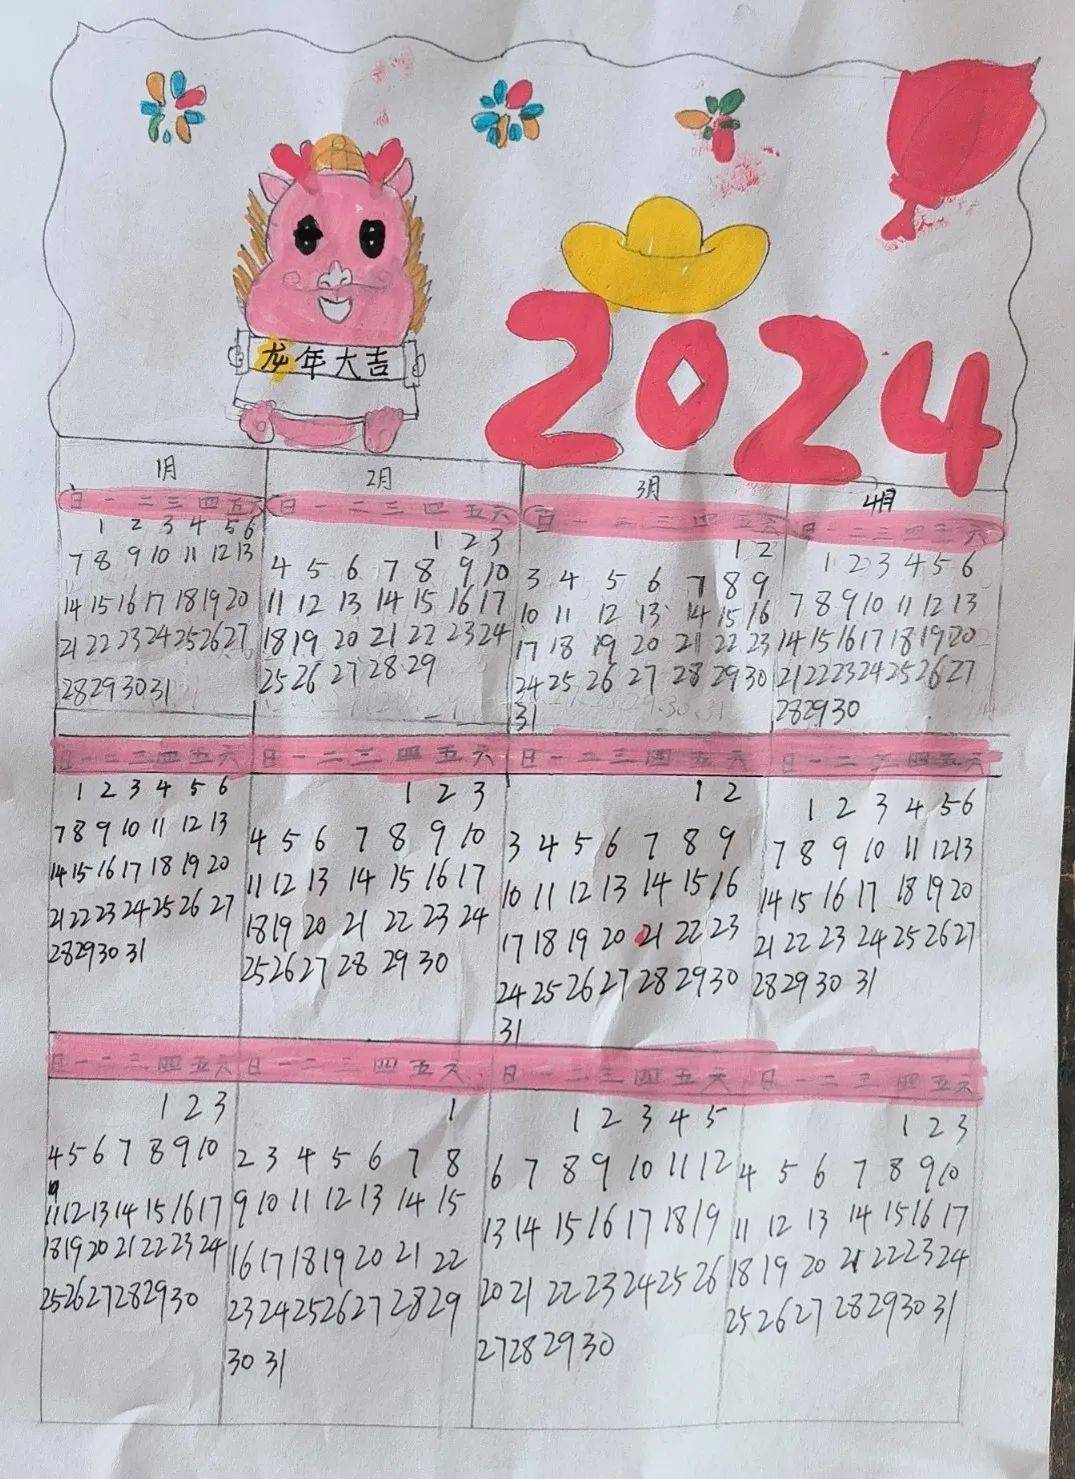 龙年大吉
2024
1月
日一二三四五六
1 2 3 4 5 6
7 8 9 10 11 12 13
14 15 16 17 18 19 20
21 22 23 24 25 26 27
28 29 30 31
2月
日一二三四五六
1 2 3
4 5 6 7 8 9 10
11 12 13 14 15 16 17
18 19 20 21 22 23 24
25 26 27 28 29
3月
日一二三四五六
1 2
3 4 5 6 7 8 9
10 11 12 13 14 15 16
17 18 19 20 21 22 23
24 25 26 27 28 29 30
31
4月
日一二三四三六
1 2 3 4 5 6
7 8 9 10 11 12 13
14 15 16 17 18 19 20
21 22 23 24 25 26 27
28 29 30
日一二三四五六
1 2 3 4 5 6
7 8 9 10 11 12 13
14 15 16 17 18 19 20
21 22 23 24 25 26 27
28 29 30 31
日一二三四五六
1 2 3
4 5 6 7 8 9 10
11 12 13 14 15 16 17
18 19 20 21 22 23 24
25 26 27 28 29 30
日一二三四五六
1 2
3 4 5 6 7 8 9
10 11 12 13 14 15 16
17 18 19 20 21 22 23
24 25 26 27 28 29 30
31
日一二三四五六
1 2 3 4 5 6
7 8 9 10 11 12 13
14 15 16 17 18 19 20
21 22 23 24 25 26 27
28 29 30 31
日一二三四五六
1 2 3
4 5 6 7 8 9 10
11 12 13 14 15 16 17
18 19 20 21 22 23 24
25 26 27 28 29 30
日一二三四五六
1
2 3 4 5 6 7 8
9 10 11 12 13 14 15
16 17 18 19 20 21 22
23 24 25 26 27 28 29
30 31
日一二三四五六
1 2 3 4 5
6 7 8 9 10 11 12
13 14 15 16 17 18 19
20 21 22 23 24 25 26
27 28 29 30
日一二三四五六
1 2 3
4 5 6 7 8 9 10
11 12 13 14 15 16 17
18 19 20 21 22 23 24
25 26 27 28 29 30 31